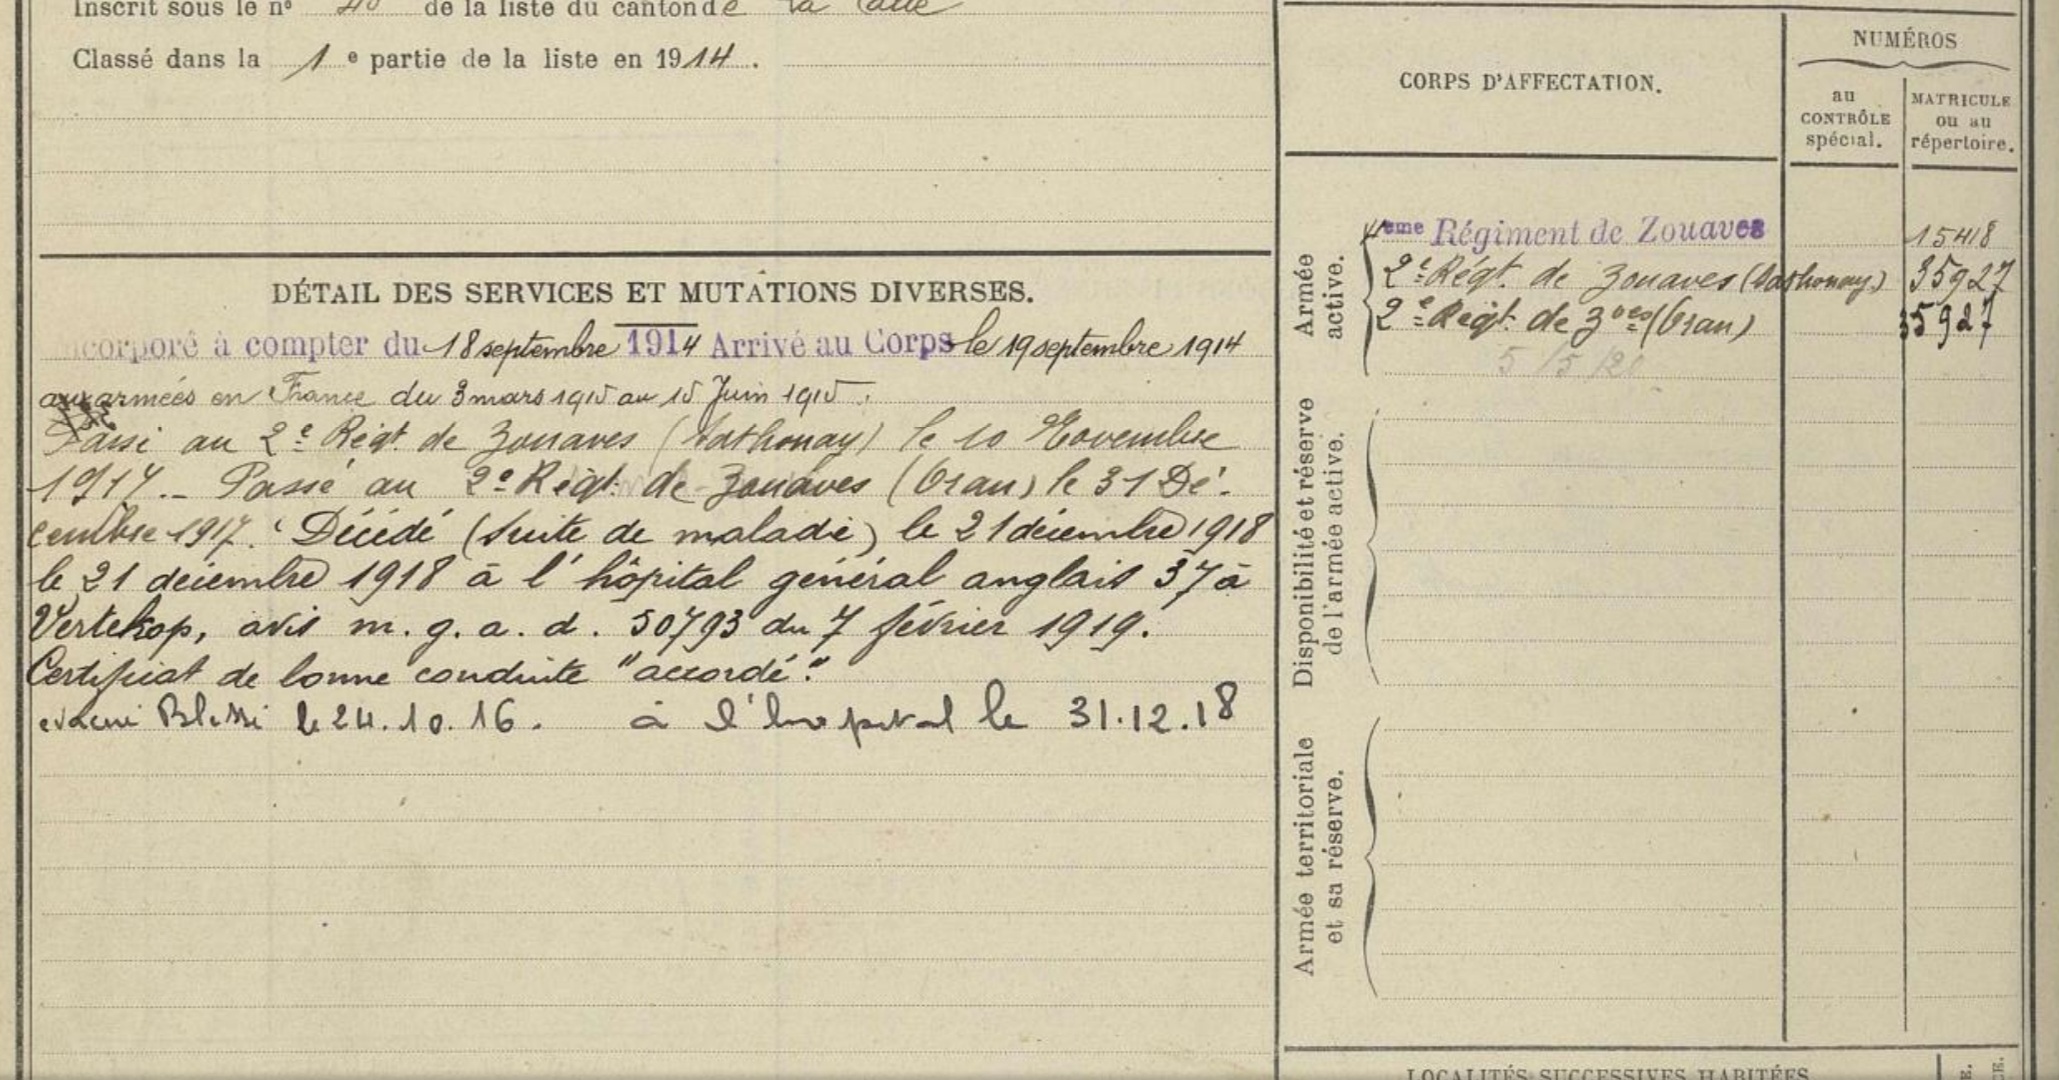 Inscrit sous le nº 40 de la liste du canton de La Calle
Classé dans la 1 e partie de la liste en 1914.
DÉTAIL DES SERVICES ET MUTATIONS DIVERSES.
incorporé à compter du 18 septembre 1914 Arrivé au Corps le 19 septembre 1914
aux armées en France du 3 mars 1915 au 15 Juin 1915.
Passé au 2e Régt. de Zouaves (Sathonay) le 10 Novembre
1917.- Passé au 2e Régt. de Zouaves (Oran) le 31 Dé-
cembre 1917. Décédé (suite de maladie) le 21 décembre 1918
le 21 décembre 1918 à l'hôpital général anglais 37 à
Vertekop, avis m. g. a. d. 50793 du 7 février 1919.
Certificat de bonne conduite "accordé".
evacué Blessé le 24.10.16. à l'hopital le 31.12.18
CORPS D'AFFECTATION.
NUMÉROS
au CONTRÔLE spécial.
MATRICULE ou au répertoire.
Armée active.
4eme Régiment de Zouaves 15418
2e Régt. de Zouaves (Sathonay) 35927
2e Régt. de Zoues (Oran) 35927
5/5/20
Disponibilité et réserve de l'armée active.
Armée territoriale et sa réserve.
LOCALITÉS SUCCESSIVES HABITÉES